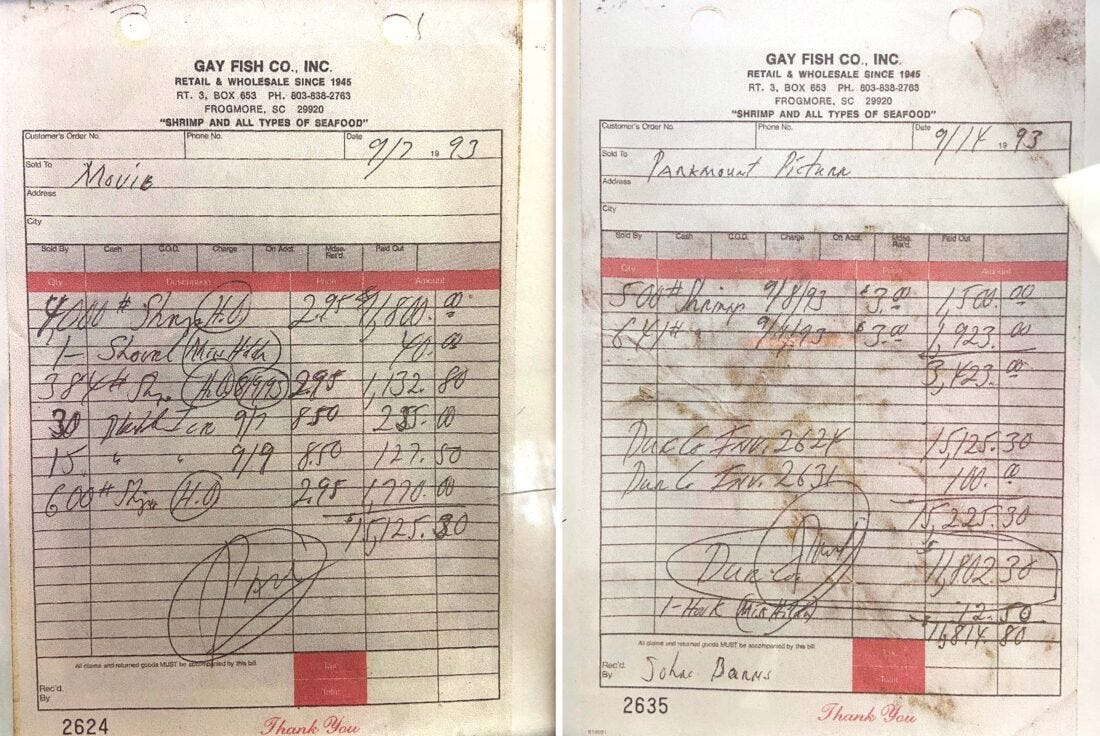 GAY FISH CO., INC.
RETAIL & WHOLESALE SINCE 1945
RT. 3, BOX 653 PH. 803-838-2763
FROGMORE, SC 29920
"SHRIMP AND ALL TYPES OF SEAFOOD"
Customer's Order No. Phone No. Date 9/7 19 93
Sold To Movie
Address
City
Sold By Cash C.O.D. Charge On Acct. Mdse. Ret'd. Paid Out
Qty Description Price Amount
4,000 # H.O 2.95 11,800.00
1- Shovel 40.00
384 # H.O 2.95 1,132.80
30 9/7 8.50 255.00
15 " " 9/9 8.50 127.50
600 # H.O 2.95 1,770.00
$15,125.30
Paid
All claims and returned goods MUST be accompanied by this bill
Tax
Rec'd. By
Total
2624 Thank You
GAY FISH CO., INC.
RETAIL & WHOLESALE SINCE 1945
RT. 3, BOX 653 PH. 803-838-2763
FROGMORE, SC 29920
"SHRIMP AND ALL TYPES OF SEAFOOD"
Customer's Order No. Phone No. Date 9/14 19 93
Sold To Parkmount Picture
Address
City
Sold By Cash C.O.D. Charge On Acct. Mdse. Ret'd. Paid Out
Qty Description Price Amount
500 # Shrimp 9/8/93 $3.00 1,500.00
641 # " $3.00 1,923.00
3,423.00
Due Co Inv. 2624 15,125.30
Due Co Inv. 2631 100.00
15,225.30
Due Co. Paid $11,802.30
12.50
11,814.80
All claims and returned goods MUST be accompanied by this bill
Tax
Rec'd By John
Total
2635 Thank You